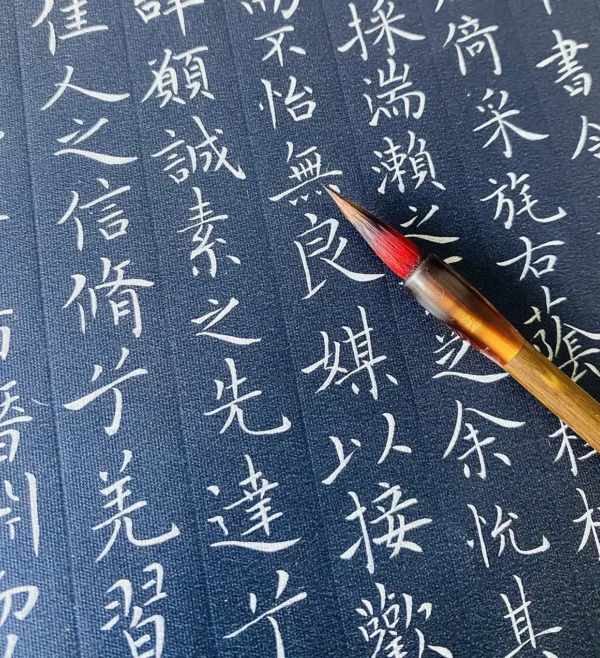 書
倚采旄右蔭
採湍瀨之芝余悅其
而不怡無良媒以接歡
辭願誠素之先達兮
佳人之信脩兮羌習